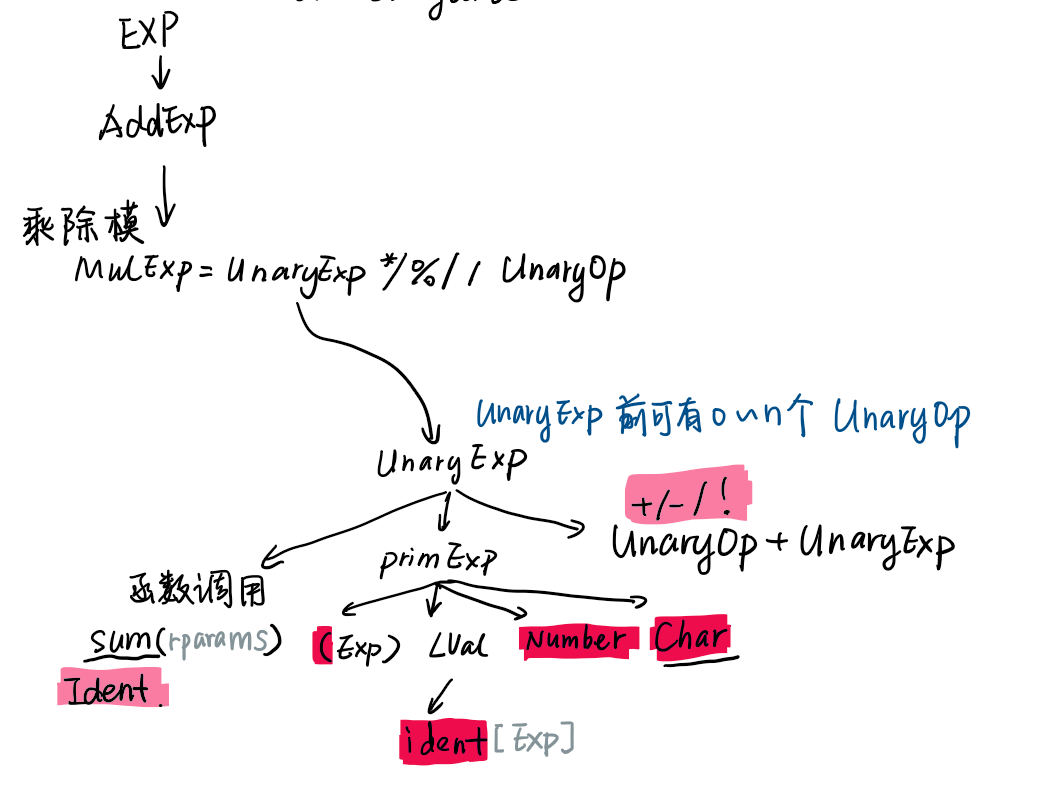 EXP
AddExp
乘除模
MulExp = UnaryExp */%// UnaryOp
UnaryExp 前可有0~n个 UnaryOp
UnaryExp
+/-/!
UnaryOp + UnaryExp
primExp
函数调用
sum(rparams) (Exp) LVal Number Char
Ident.
ident[Exp]